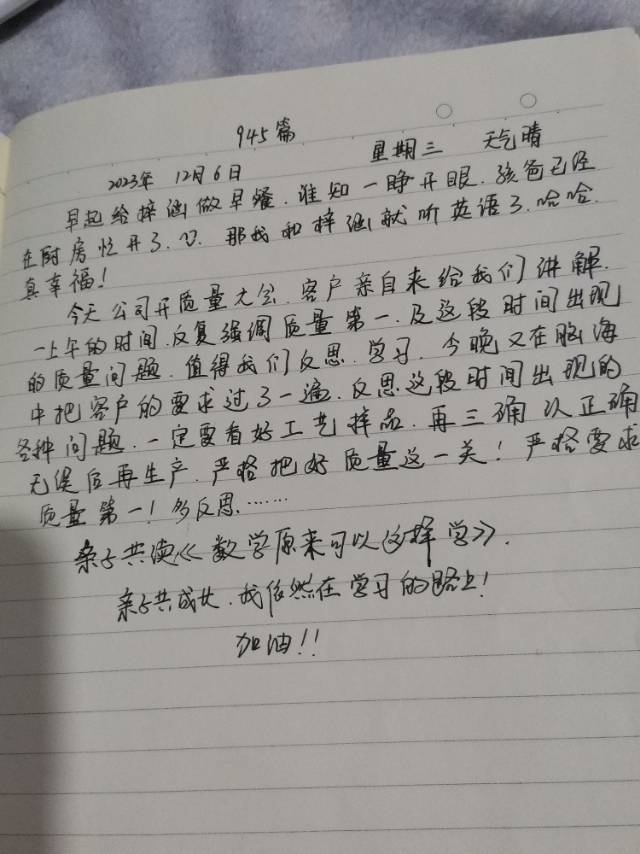 945篇
2023年 12月6日 星期三 天气晴
早起给梓涵做早餐.谁知一睁开眼.孩爸已经
在厨房忙开了. 那我和梓涵就听英语了.哈哈.
真幸福!
今天公司开质量大会.客户亲自来给我们讲解.
一上午的时间.反复强调质量第一.及这段时间出现
的质量问题.值得我们反思.学习.今晚又在脑海
中把客户的要求过了一遍.反思这段时间出现的
各种问题.一定要看好工艺样品.再三确认正确
无误后再生产.严格把好质量这一关!严格要求
质量第一!多反思.……
亲子共读《数学原来可以这样学》.
亲子共成长.我依然在学习的路上!
加油!!